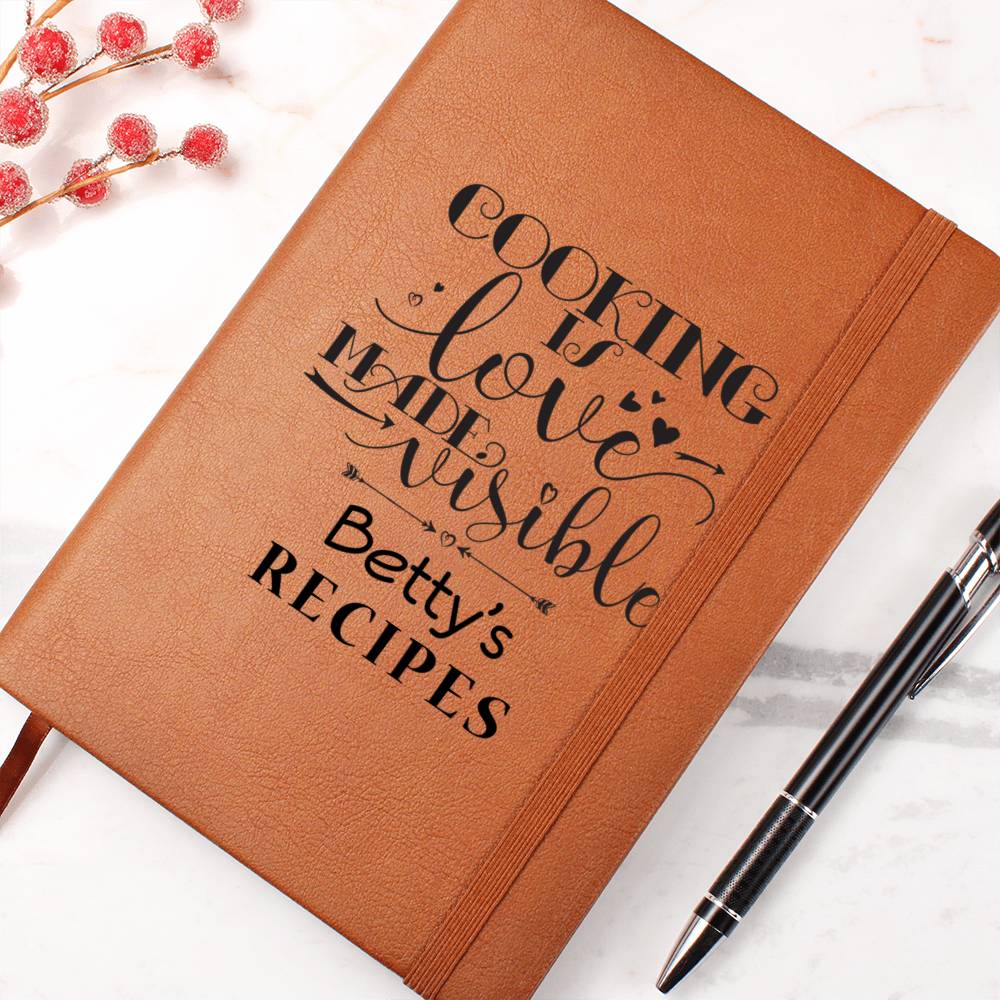 COOKING
IS
love
MADE
visible
Betty's
RECIPES